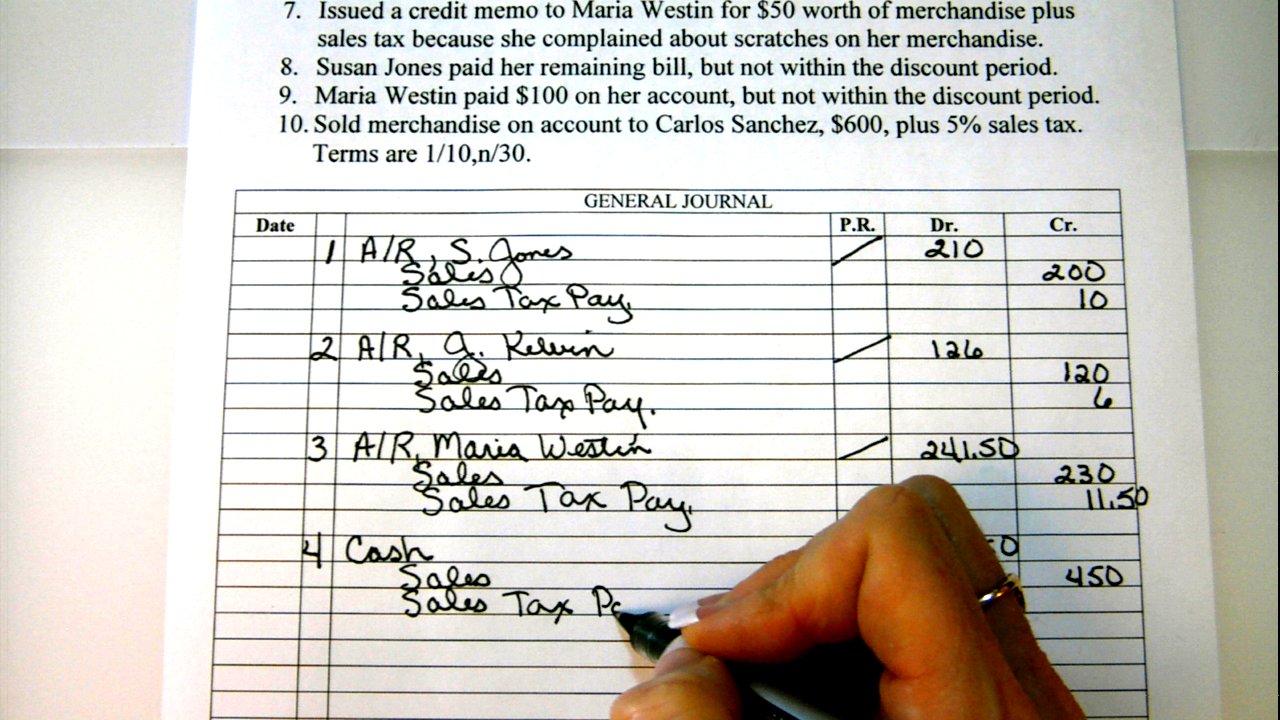 7. Issued a credit memo to Maria Westin for $50 worth of merchandise plus
sales tax because she complained about scratches on her merchandise.
8. Susan Jones paid her remaining bill, but not within the discount period.
9. Maria Westin paid $100 on her account, but not within the discount period.
10. Sold merchandise on account to Carlos Sanchez, $600, plus 5% sales tax.
Terms are 1/10,n/30.
GENERAL JOURNAL
Date P.R. Dr. Cr.
1 A/R, S. Jones 210
Sales 200
Sales Tax Pay. 10
2 A/R, J. Kelvin 126
Sales 120
Sales Tax Pay. 6
3 A/R, Maria Westin 241.50
Sales 230
Sales Tax Pay. 11.50
4 Cash
Sales 450
Sales Tax